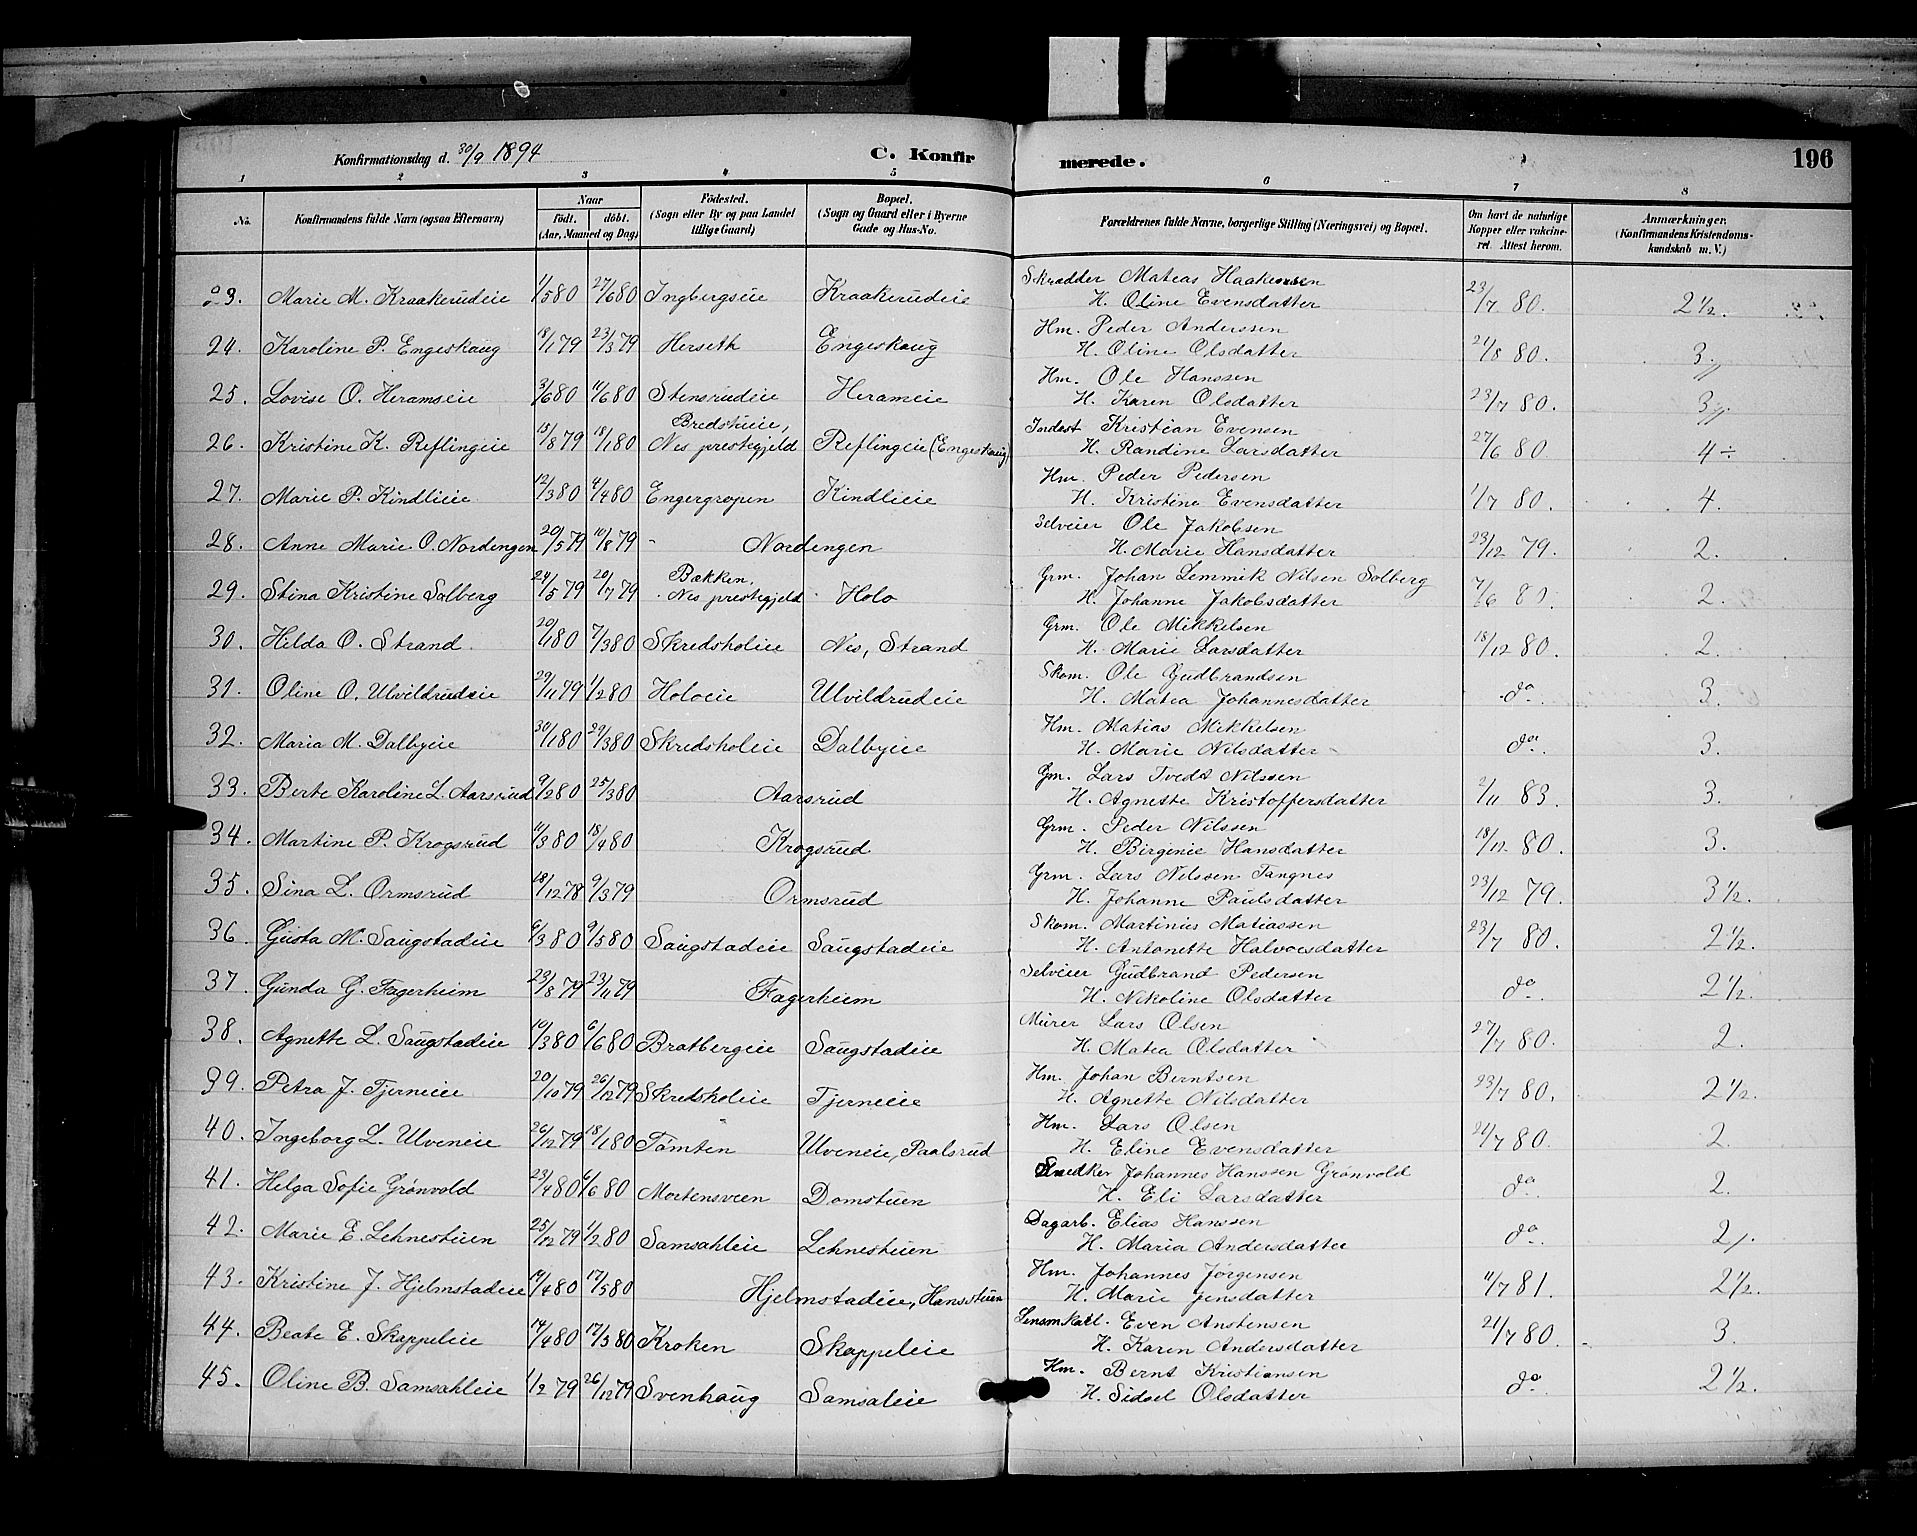 Konfirmationsdag d. 30/9 1894 C. Konfirmerede. 196
1 2 3 4 5 6 7 8
No. Konfirmandens fulde Navn (ogsaa Efternavn) Naar født. døbt. (Aar, Maaned og Dag) Fødested. (Sogn eller By og paa Landet tillige Gaard) Bopæl. (Sogn og Gaard eller i Byerne Gade og Hus-No. Forældrenes fulde Navne, borgerlige Stilling (Næringsvei) og Bopæl. Om havt de naturlige Kopper eller vakcineret. Attest herom. Anmærkninger. (Konfirmandens Kristendomskundskab m. V.)
23. Marie M. Kraakerudeie 1/5 80 27/6 80 Ingbergseie Kraakerudeie Skrædder Mateas Haakensen
H. Oline Evensdatter 23/7 80. 2 1/2.
24. Karoline P. Engeskaug 18/1 79 23/3 79 Herseth Engeskaug Hm. Peder Anderssen
H. Oline Olsdatter 21/8 80. 3
25. Lovise O. Heramseie 3/6 80 11/6 80 Stensrudeie Herameie Hm. Ole Hanssen
H. Karen Olsdatter 23/7 80. 3
26. Kristine K. Reflingeie 15/8 79 18/1 80 Bredstueie, Nes prestegjeld Reflingeie (Engeskaug) Inderst Kristian Evensen
H. Randine Larsdatter 27/6 80 4÷
27. Marie P. Kindlieie 12/3 80 4/4 80 Engergropen Kindlieie Hm. Peder Pedersen
H. Kristine Evensdatter 1/7 80. 4.
28. Anne Marie O. Nordengen 20/5 79 10/8 79 Nordengen Selveier Ole Jakobsen
H. Marie Hansdatter 23/12 79. 2.
29. Stina Kristine Solberg 24/5 79 20/7 79 Bækken, Nes prestegjeld Holo Grm. Johan Lemmik Nilsen Solberg
H. Johanne Jakobsdatter 7/6 80. 2.
30. Hilda O. Strand 20/1 80 7/3 80 Skredsholeie Nes, Strand Grm. Ole Mikkelsen
H. Marie Larsdatter 18/12 80. 2.
31. Oline O. Ulvildrudeie 29/11 79 1/2 80 Holoeie Ulvildrudeie Skom. Ole Gudbrandsen
H. Matea Johannesdatter do. 3.
32. Maria M. Dalbyeie 30/1 80 29/3 80 Skredsholeie Dalbyeie Hm. Matias Mikkelsen
H. Marie Nilsdatter do. 3.
33. Berte Karoline L. Aarsrud 9/2 80 25/3 80 Aarsrud Gm. Lars Tvedt Nilssen
H. Agnette Kristoffersdatter 2/11 83. 3.
34. Martine P. Krogsrud 11/3 80 18/4 80 Krogsrud Grm. Peder Nilssen
H. Birginie Hansdatter 18/12 80. 3.
35. Sina L. Ormsrud 18/12 78 9/3 79 Ormsrud Grm. Lars Nilssen Tangnes
H. Johanne Paulsdatter 23/12 79. 3 1/2.
36. Gusta M. Saugstadeie 6/3 80 9/5 80 Saugstadeie Saugstadeie Skom. Martinius Matiassen
H. Antonette Halvorsdatter 23/7 80. 2 1/2
37. Gunda G. Fagerheim 23/8 79 23/11 79 Fagerheim Selveier Gudbrand Pedersen
H. Nikoline Olsdatter do. 2 1/2.
38. Agnette L. Saugstadeie 10/3 80 6/6 80 Bratbergeie Saugstadeie Murer Lars Olsen
H. Matea Olsdatter 27/7 80. 2.
39. Petra J. Tjerneie 20/10 79 26/12 79 Skredsholeie Tjerneie Hm. Johan Berntsen
H. Agnette Nilsdatter 23/7 80. 2 1/2.
40. Ingeborg L. Ulveneie 26/12 79 18/1 80 Tømten Ulveneie, Paalsrud Hm. Lars Olsen
H. Eline Evensdatter 21/7 80. 2.
41. Helga Sofie Grønvold 23/4 80 6/6 80 Mortensveen Domstuen Snedker Johannes Hanssen Grønvold
H. Eli Larsdatter do. 2.
42. Marie E. Lehnestuen 25/12 79 1/2 80 Samsahleie Lehnestuen Dagarb. Elias Hanssen
H. Maria Andersdatter do. 2
43. Kristine J. Hjelmstadeie 14/4 80 17/5 80 Hjelmstadeie, Hansstuen Hm. Johannes Jørgensen
H. Marie Jensdatter 11/7 81. 2 1/2.
44. Beate E. Skappeleie 14/2 80 17/3 80 Kroken Skappeleie Lensmkarl. Even Anstensen
H. Karen Andersdatter 21/7 80. 3.
45. Oline B. Samsahleie 1/12 79 26/12 79 Svenhaug Samsaleie Hm. Bernt Kristiansen
H. Sidsel Olsdatter do. 2 1/2.